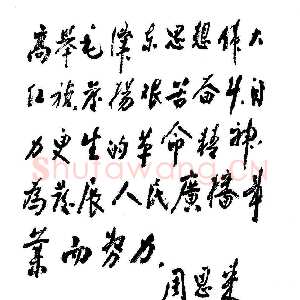 高举毛泽东思想伟大
红旗发扬艰苦奋斗自
力更生的革命精神
為发展人民廣播事
業而努力.
周恩来
Shufawang.CN